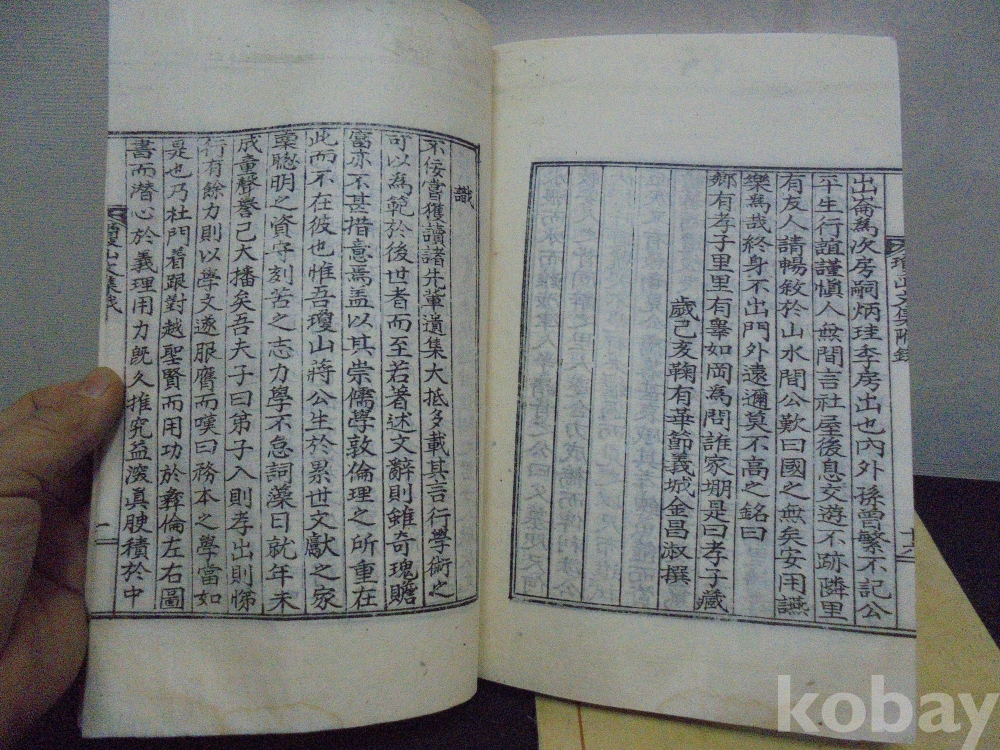 瓊山文集附錄
出崙爲次房嗣炳珪季房出也內外孫曾繁不記公
平生行誼謹愼人無間言社屋後息交遊不跡隣里
有友人請暢敘於山水間公歎曰國之無矣安用讌
樂爲哉終身不出門外遠邇莫不高之銘曰
鄕有孝子里里有睾如岡爲問誰家堋是曰孝子藏
歲己亥鞠有華節義城金昌淑撰
識
不佞嘗獲讀諸先輩遺集大抵多載其言行學術之
可以爲範於後世者而至若著述文辭則雖奇瑰贍
富亦不甚措意焉盖以其崇儒學敦倫理之所重在
此而不在彼也惟吾瓊山蔣公生於累世文獻之家
稟聰明之資守刻苦之志力學不怠詞藻日就年未
成童聲譽已大播矣吾夫子曰弟子入則孝出則悌
行有餘力則以學文遂服膺而嘆曰務本之學當如
是也乃杜門着跟對越聖賢而用功於彛倫左右圖
書而潛心於義理用力旣久推究益深眞腴積於中
二
kobay